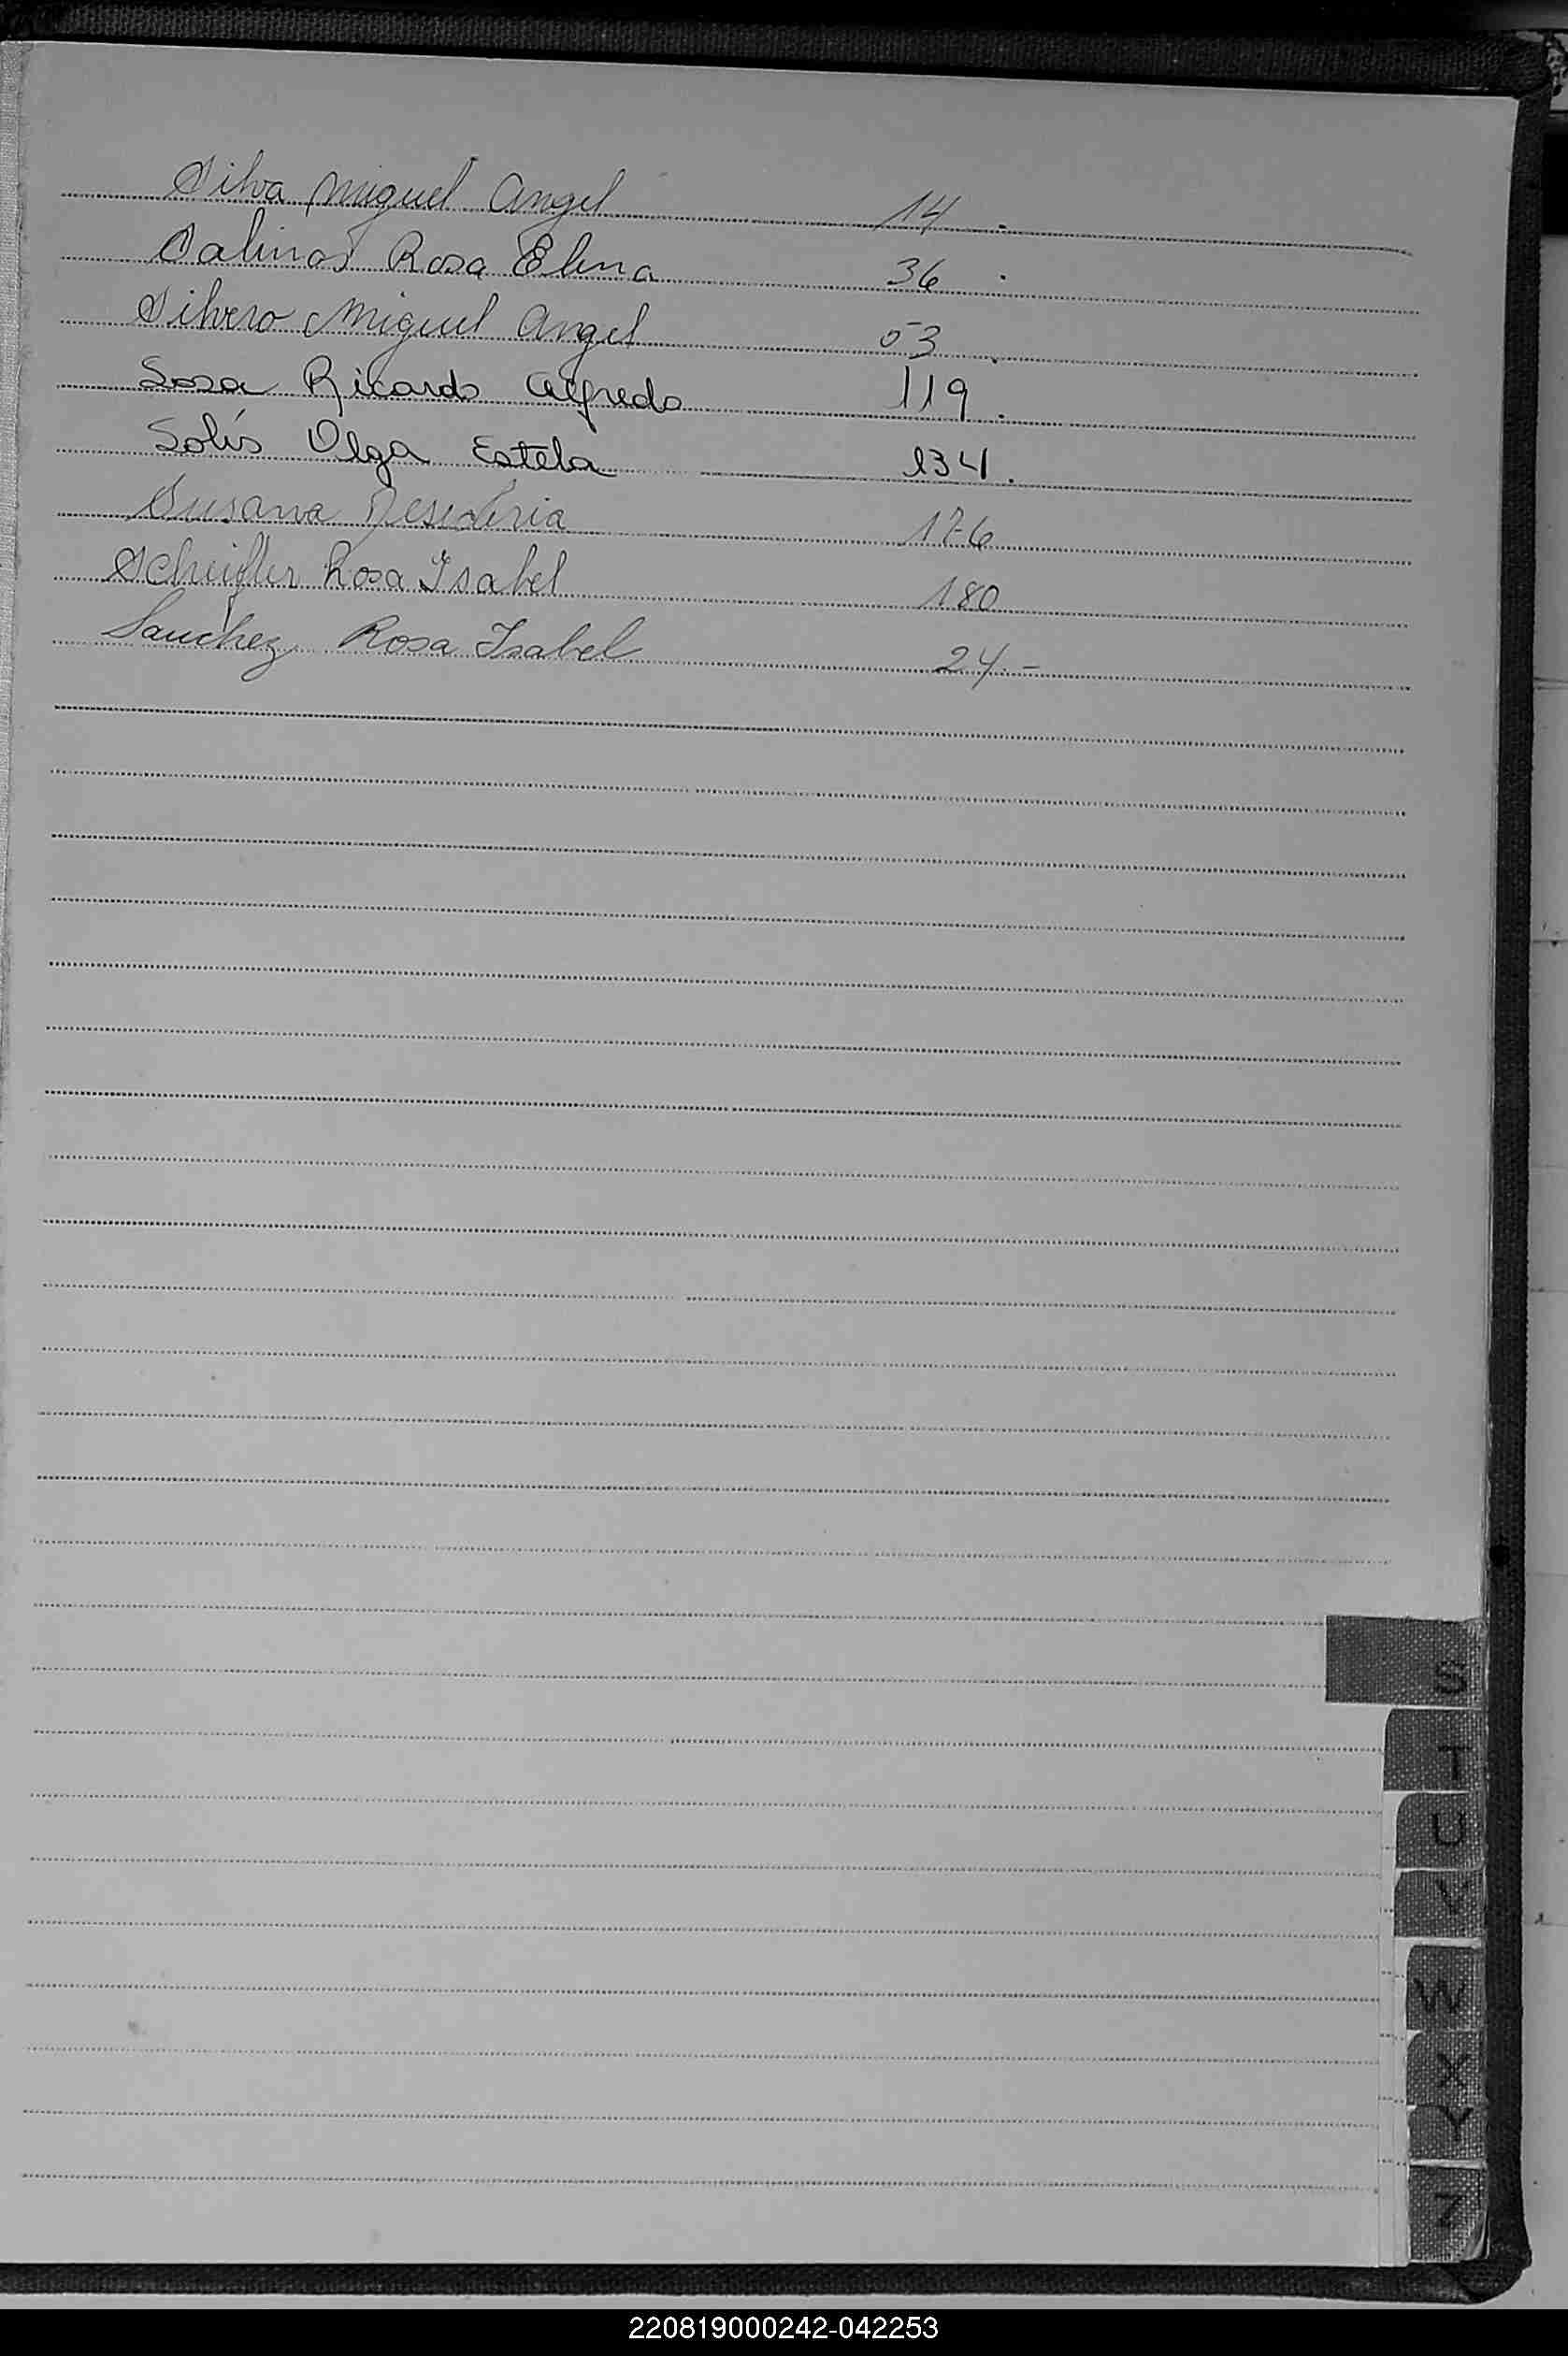 Silva Miguel Angel 14 .
Salinas Rosa Elena 36 .
Silvero Miguel Angel 53 .
Sosa Ricardo Alfredo 119 .
Solís Olga Estela 134 .
Susana Desideria 176
Scheifler Rosa Isabel 180
Sanchez Rosa Isabel 24.-
S
T
U
V
W
X
Y
Z
220819000242-042253